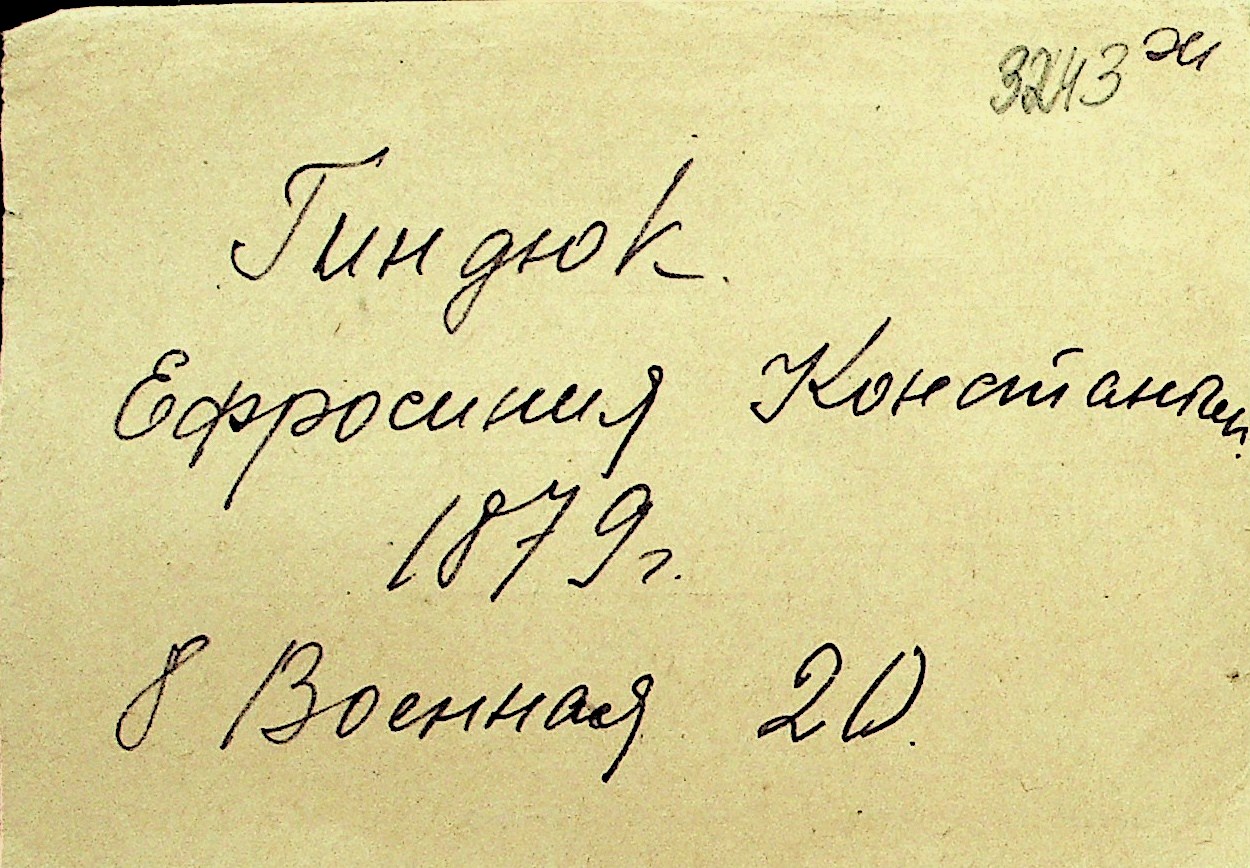 3243 эи
Гиндюк.
Ефросиния Константин.
1879 г.
8 Военная 20.